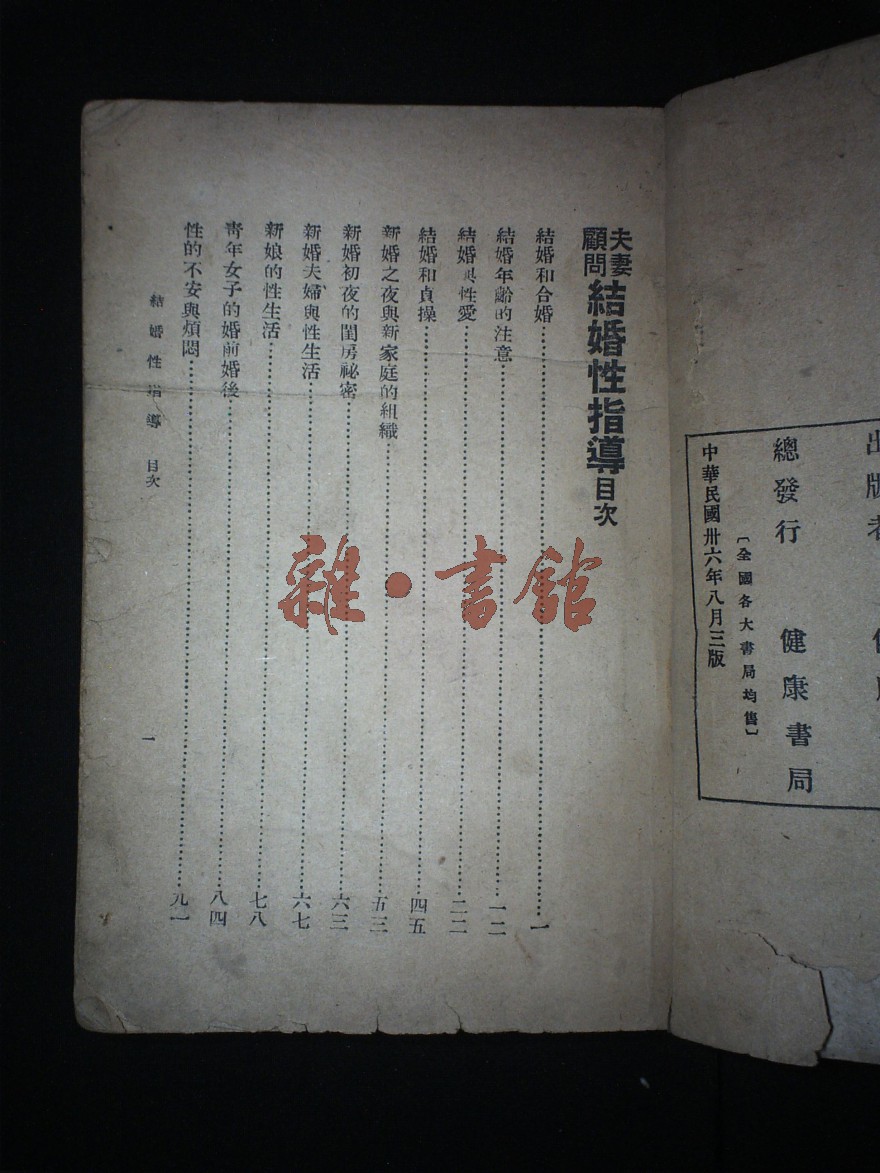 總發行 健康書局
〔全國各大書局均售〕
中華民國卅六年八月三版
夫妻顧問 結婚性指導目次
結婚和合婚……一
結婚年齡的注意……一二
結婚與性愛……二二
結婚和貞操……四五
新婚之夜與新家庭的組織……五三
新婚初夜的閨房祕密……六三
新婚夫婦與性生活……六七
新娘的性生活……七八
靑年女子的婚前婚後……八四
性的不安與煩悶……九一
結婚性指導 目次
一
雜·書館